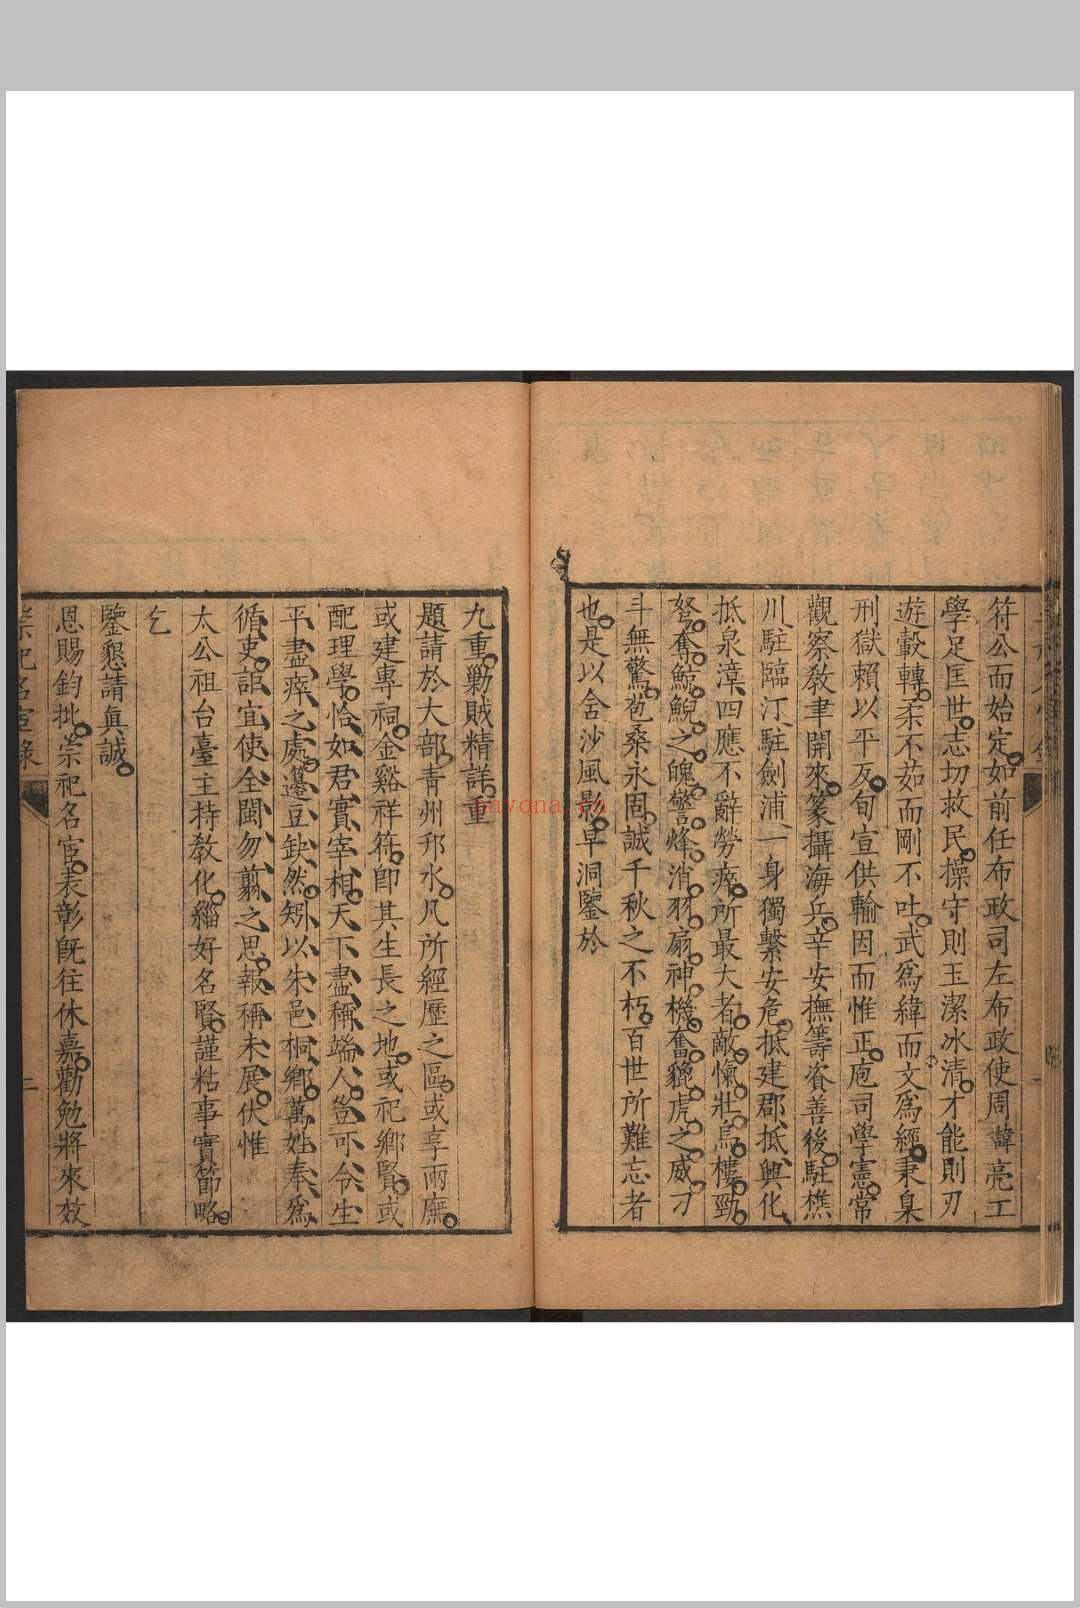 符公而始定如前任布政司左布政使周諱亮工
學足匡世志切救民操守則玉潔冰清才能則刃
遊轂轉柔不茹而剛不吐武爲緯而文爲經秉臬
刑獄賴以平反旬宣供輸因而惟正庖司學憲常
觀察敎聿開來篆攝海兵辛安撫籌資善後駐樵
川駐臨汀駐劍浦一身獨繫安危抵建郡抵興化
抵泉漳四應不辭勞瘁所最大者敵愾壯烏樓勁
弩奪鯨鯢之魄警烽消羽扇神機奮貔虎之威刁
斗無驚苞桑永固誠千秋之不朽百世所難忘者
也是以含沙風影早洞鑒於
九重勦賊精詳重
題請於大部青州邗水凡所經歷之區或享兩廡
或建專祠金谿祥符卽其生長之地或祀鄕賢或
配理學恰如君實宰相天下盡稱端人豈可令生
平盡瘁之處籩豆缺然矧以朱邑桐鄕萬姓奉爲
循吏詎宜使全閩勿翦之思報稱未展伏惟
太公祖台臺主持敎化緇好名賢謹粘事實節略
乞
鑒懇請眞誠
恩賜鈞批崇祀名宦表彰旣往休嘉勸勉將來效
崇祀名宦錄
二
nayona.cn